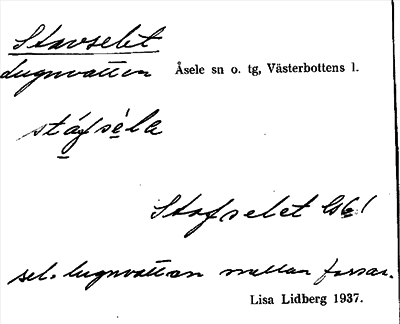 Stavselet
Lugnvatten Åsele sn o. tg, Västerbottens l.
stáfséla
Stafselet Gs61
sel = lugnvattnen mellan forsar.
Lisa Lidberg 1937.